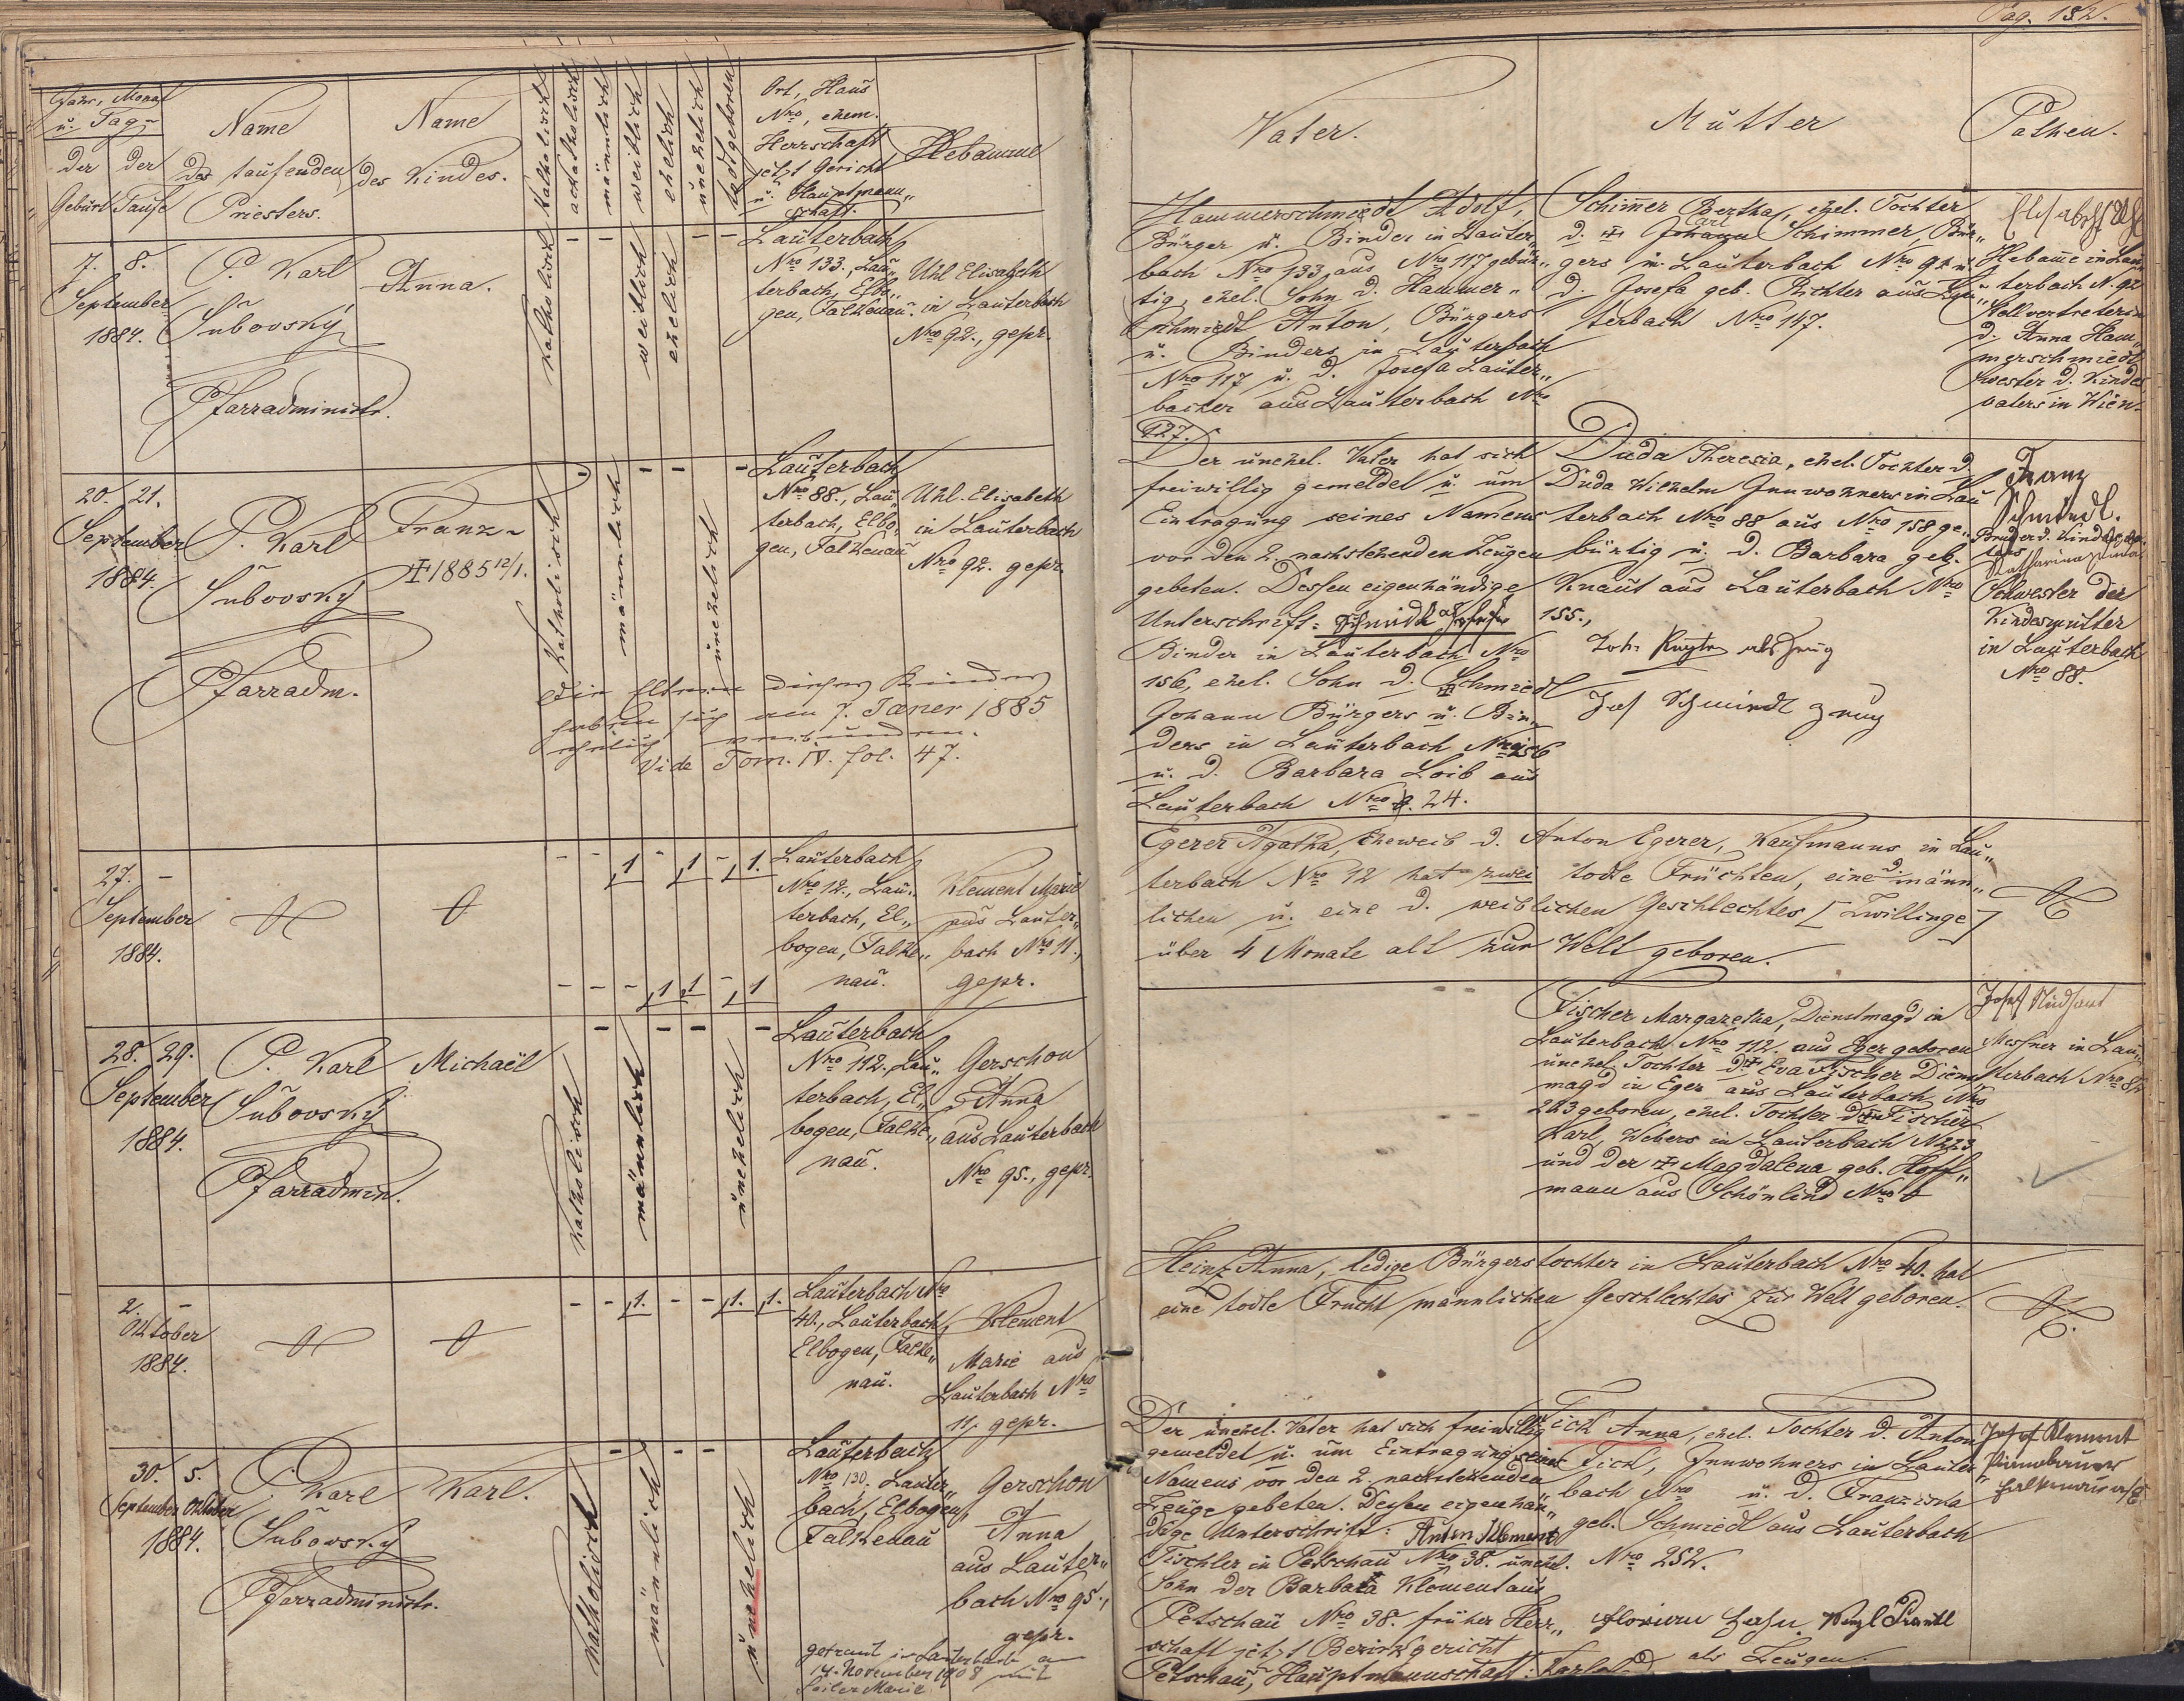 Pag. 182.
Jahr, Monat
u. Tag
der der
Geburt Taufe
Name
des taufenden
Priesters.
Name
des Kindes.
Katholisch
akatholisch
männlich
weiblich
ehelich
unehelich
todtgeboren
Ort, Haus
Nro, ehem.
Herrschaft
jetzt Gericht
u. Hauptmann„
schaft.
Hebamme
Vater.
Mutter
Pathen.
7. 8.
September
1884.
P. Karl
Šubovský
Pfarradministr.
Anna.
katholisch
weiblich
ehelich
Lauterbach
Nro 133., Lau„
terbach, Elbo„
gen, Falkenau.
Uhl Elisabeth
in Lauterbach
Nro 92., gepr.
Hammerschmiedt Adolf,
Bürger u. Binder in Lauter„
bach Nro 133, aus Nro 117 gebür„
tig, ehel. Sohn d. Hammer„
schmiedt Anton, Bürgers
u. Binders in Lauterbach
Nro 117 u. d. Josefa Lauter„
bacher aus Lauterbach Nro
127.
Schimer Bertha, ehel. Tochter
d. † Johann Carl Schimmer, Bür„
gers in Lauterbach Nro 92 u.
d. Josefa geb. Richter aus Lau„
terbach Nro 147.
Elisabeth Uhl
Hebame in Lau„
terbach N. 92
Stellvertreterin
d. Anna Ham„
merschmiedt
Swester d. Kindes
vaters in Wien.
20. 21.
September
1884.
P. Karl
Šubovský
Pfarradm.
Franz
† 1885 12/1.
Katholisch
männlich
unehelich
Lauterbach
Nro 88., Lau„
terbach, Elbo„
gen, Falkenau
Uhl. Elisabeth
in Lauterbach
Nro 92. gepr.
Die Eltern dieses Kindes
haben sich am 7. Jäner 1885
ehelich verbunden.
Vide Tom. IV. fol. 47.
Der unehel. Vater hat sich
freiwillig gemeldet u. um
Eintragung seines Namens
vor den 2. nachstehenden Zeugen
gebeten. Dessen eigenhändige
Unterschrift: Schmidl
Binder in Lauterbach Nro
156, ehel. Sohn d. † Schmiedl
Johann Bürgers u. Bin„
ders in Lauterbach Nro 156
u. d. Barbara Loib aus
Lauterbach Nro 24.
Duda Theresia, ehel. Tochter d.
Duda Wilhelm Innwohners in Lau
terbach Nro 88 aus Nro 158 ge„
bürtig u. d. Barbara geb.
Knaut aus Lauterbach Nro
155.,
Joh. als Zeug
Jos Schmiedl Zeug
Franz
Schmiedl.
Bruder d. Kindesva„
ters
Katharina Duda
Schwester der
Kindesmutter
in Lauterbach
Nro 88.
27. –
September
1884.
1 1 1.
1 1 1
Lauterbach
Nro 12., Lau„
terbach, El„
bogen, Falke„
nau.
Klement Marie
aus Lauter„
bach Nro 11.,
gepr.
Egerer Agatha, Eheweib d. Anton Egerer, Kaufmanns in Lau„
terbach Nro 12 hat zwei todte Früchten, eine d. männ„
lichen u. eine d. weiblichen Geschlechtes [Zwillinge]
über 4 Monate alt zur Welt geboren.
28. 29.
September
1884.
P. Karl
Šubovský
Pfarradmin.
Michaël
Katholisch
männlich
unehelich
Lauterbach
Nro 112. Lau„
terbach, El„
bogen, Falke„
nau.
Gerschon
Anna
aus Lauterbach
Nro 95., gepr.
Fischer Margaretha, Dienstmagd in
Lauterbach Nro 112. aus Eger geboren
unehel. Tochter d. † Eva Fischer Dienst
magd in Eger aus Lauterbach Nro
223 geboren, ehel. Tochter d. † Fischer
Karl, Webers in Lauterbach N 223
und der † Magdalena geb. Hoff„
mann aus Schönlind Nro 6
Josef
Messner in Lau„
terbach Nro 82
2. –
Oktober
1884.
1. 1. 1.
Lauterbach Nro
40., Lauterbach,
Elbogen, Falke„
nau.
Klement
Marie aus
Lauterbach Nro
11, gepr.
Heinz Anna, ledige Bürgerstochter in Lauterbach Nro 40. hat
eine todte Frucht männlichen Geschlechtes zur Welt geboren.
30. 5.
September Oktober
1884.
P. Karl
Šubovský
Pfarradministr.
Karl.
Katholisch
männlich
unehelich
Lauterbach
Nro 130. Lauter„
bach, Elbogen,
Falkenau
Gerschon
Anna
aus Lauter„
bach Nro 95.,
gepr.
getraut in Lauterbach am
14. November 1908 mit
Seiler Marie
Der unehel. Vater hat sich freiwillig
gemeldet u. um Eintragung seines
Namens vor den 2. nachstehenden
Zeuge gebeten. Dessen eigenhän„
dige Unterschrift: Anton Klement
Tischler in Petschau Nro 38. unehel.
Sohn der Barbara Klement aus
Petschau Nro 38. früher Herr„
schaft jetzt Bezirksgericht
Petschau, Hauptmannschaft:
Tick Anna, ehel. Tochter d. Anton
Tick, Innwohners in Lauter„
bach Nro u. d. Franziska
geb. Schmiedl aus Lauterbach
Nro 252.
Florian Hahn. Wenzl
als Zeugen.
Josef Klement
Falkenau